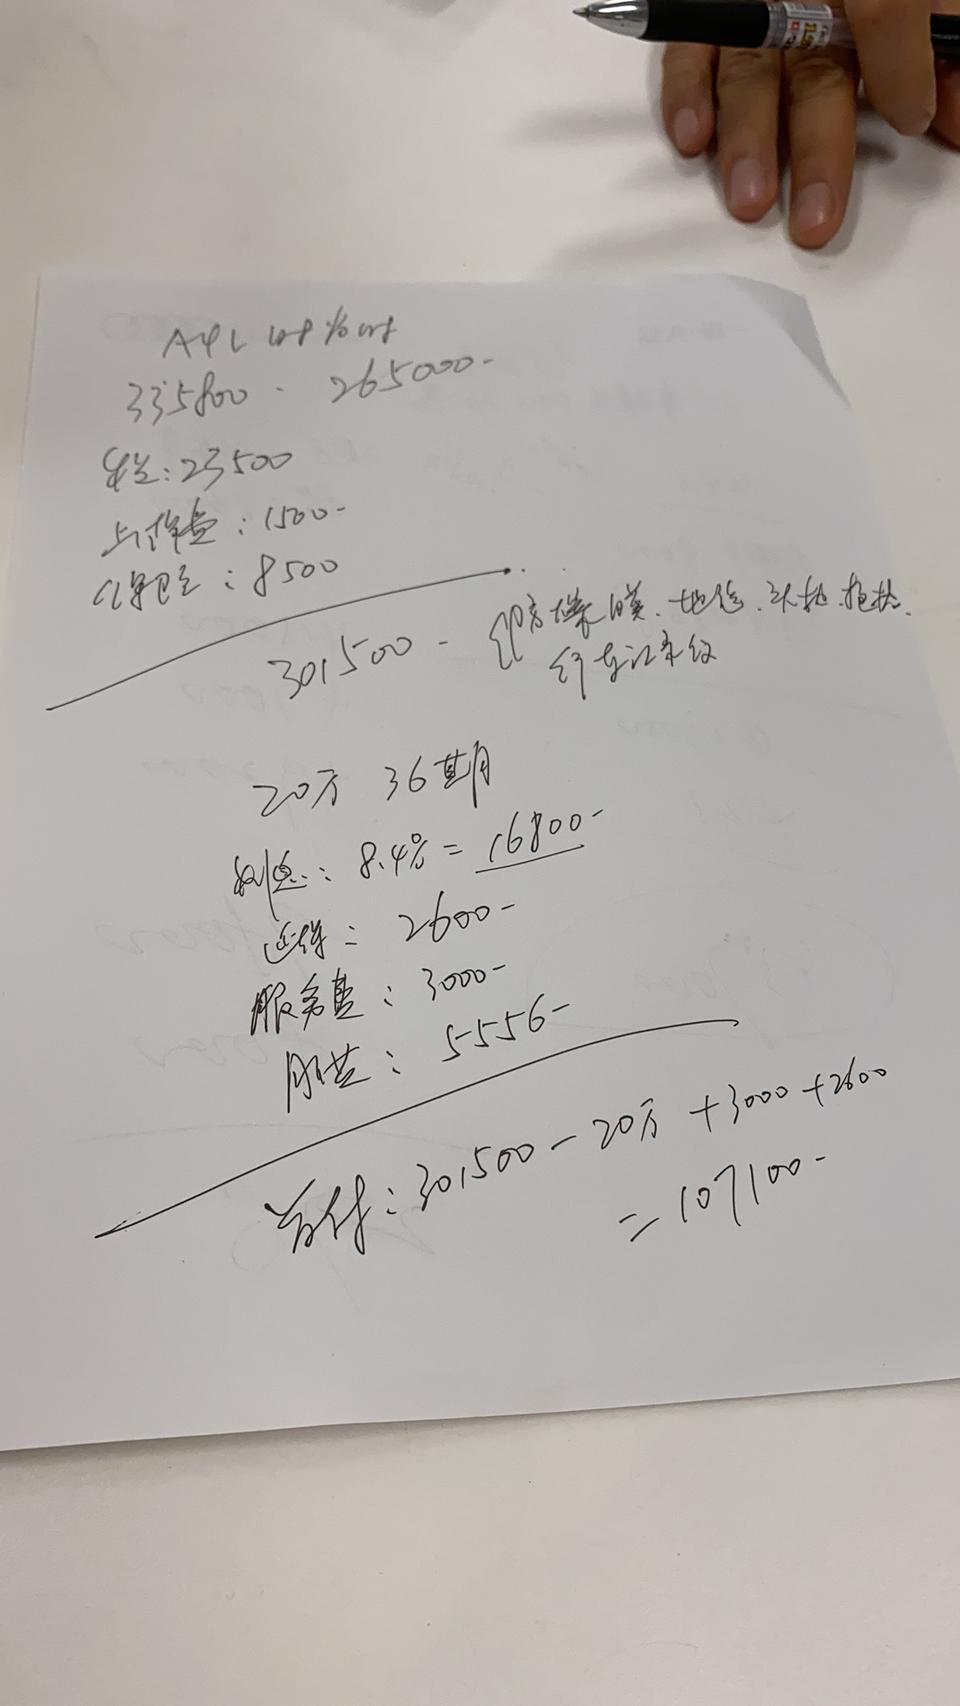 A4L
335800 - 265000-
23500
上牌费:1500-
保险:8500
301500-
行车记录仪
20万 36期
利息:8.4%=16800-
延保:2600-
服务费:3000-
月供:5556-
首付:301500-20万+3000+2600
=107100-